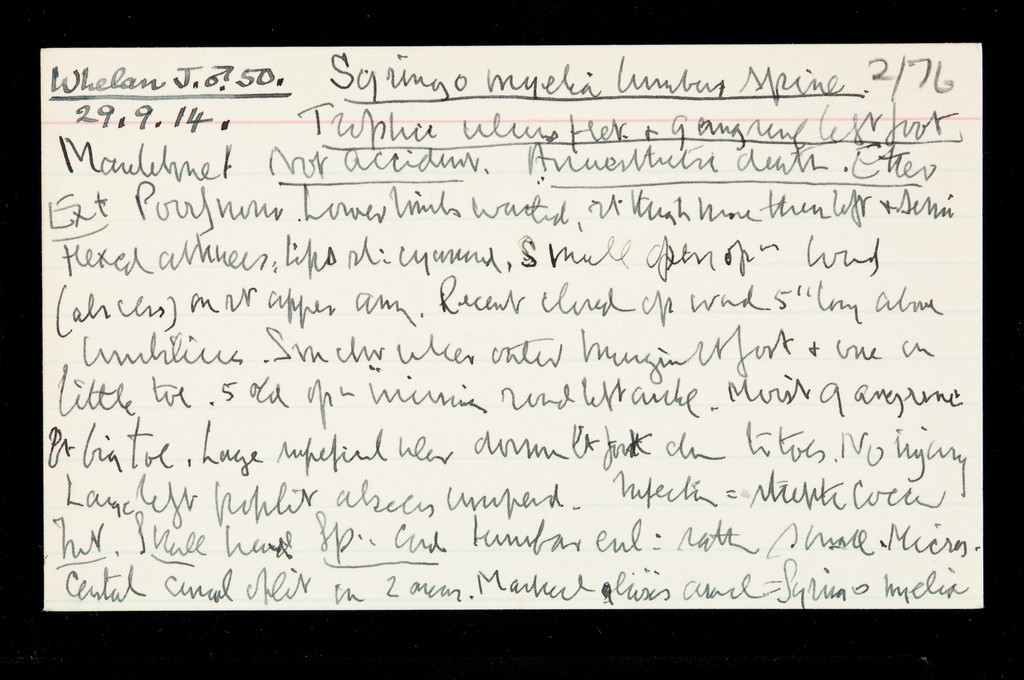 Whelan J. ♂. 50. Syringo myelia lumbar spine. 2/76
29.9.14. Trophic ulcers feet + gangrene left foot
Not accident. Anaesthetic death. Ether
Ext Poor nour. Lower limbs wasted, rt thigh more than left + semi
flexed at knees, lips sli: cyanosed. Small open opn wound
(abscess) on rt upper arm. Recent closed op wound 5" long above
umbilicus. Similar ulcer outer margin rt foot + one on
little toe. 5 old opn incisions round left ankle. Moist gangrene
lt big toe. Large superficial ulcer dorsum lt foot down to toes. No injury
Large left poplit abscess unopened. Infection = strepto cocci
Int. Skull head Sp: Cord lumbar enl: rather small. Micros.
Central canal split in 2 areas. Marked gliosis around = Syringo myelia